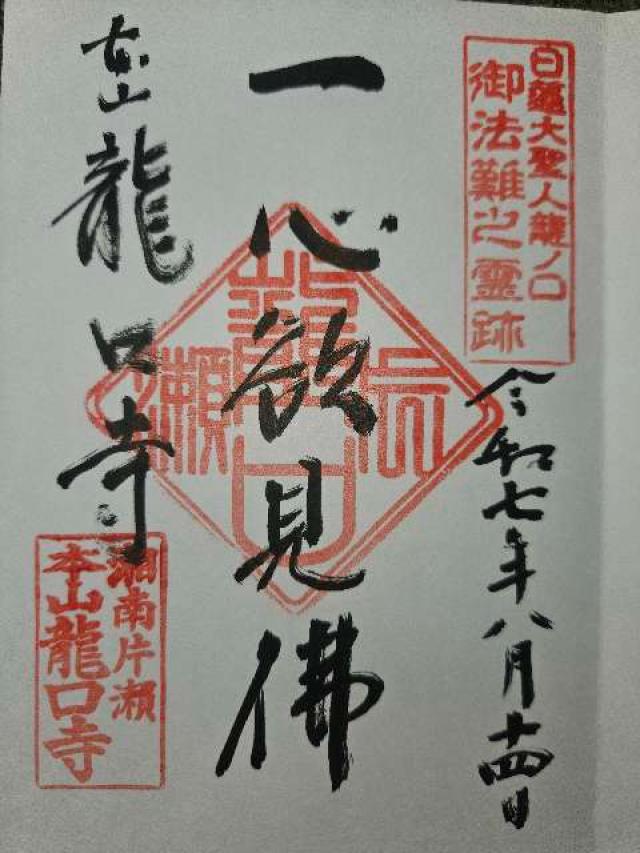 日蓮大聖人龍ノ口
御法難之霊跡
令和七年八月十四日
一心欲見佛
片瀬
龍口
本山龍口寺
湘南片瀬
本山龍口寺